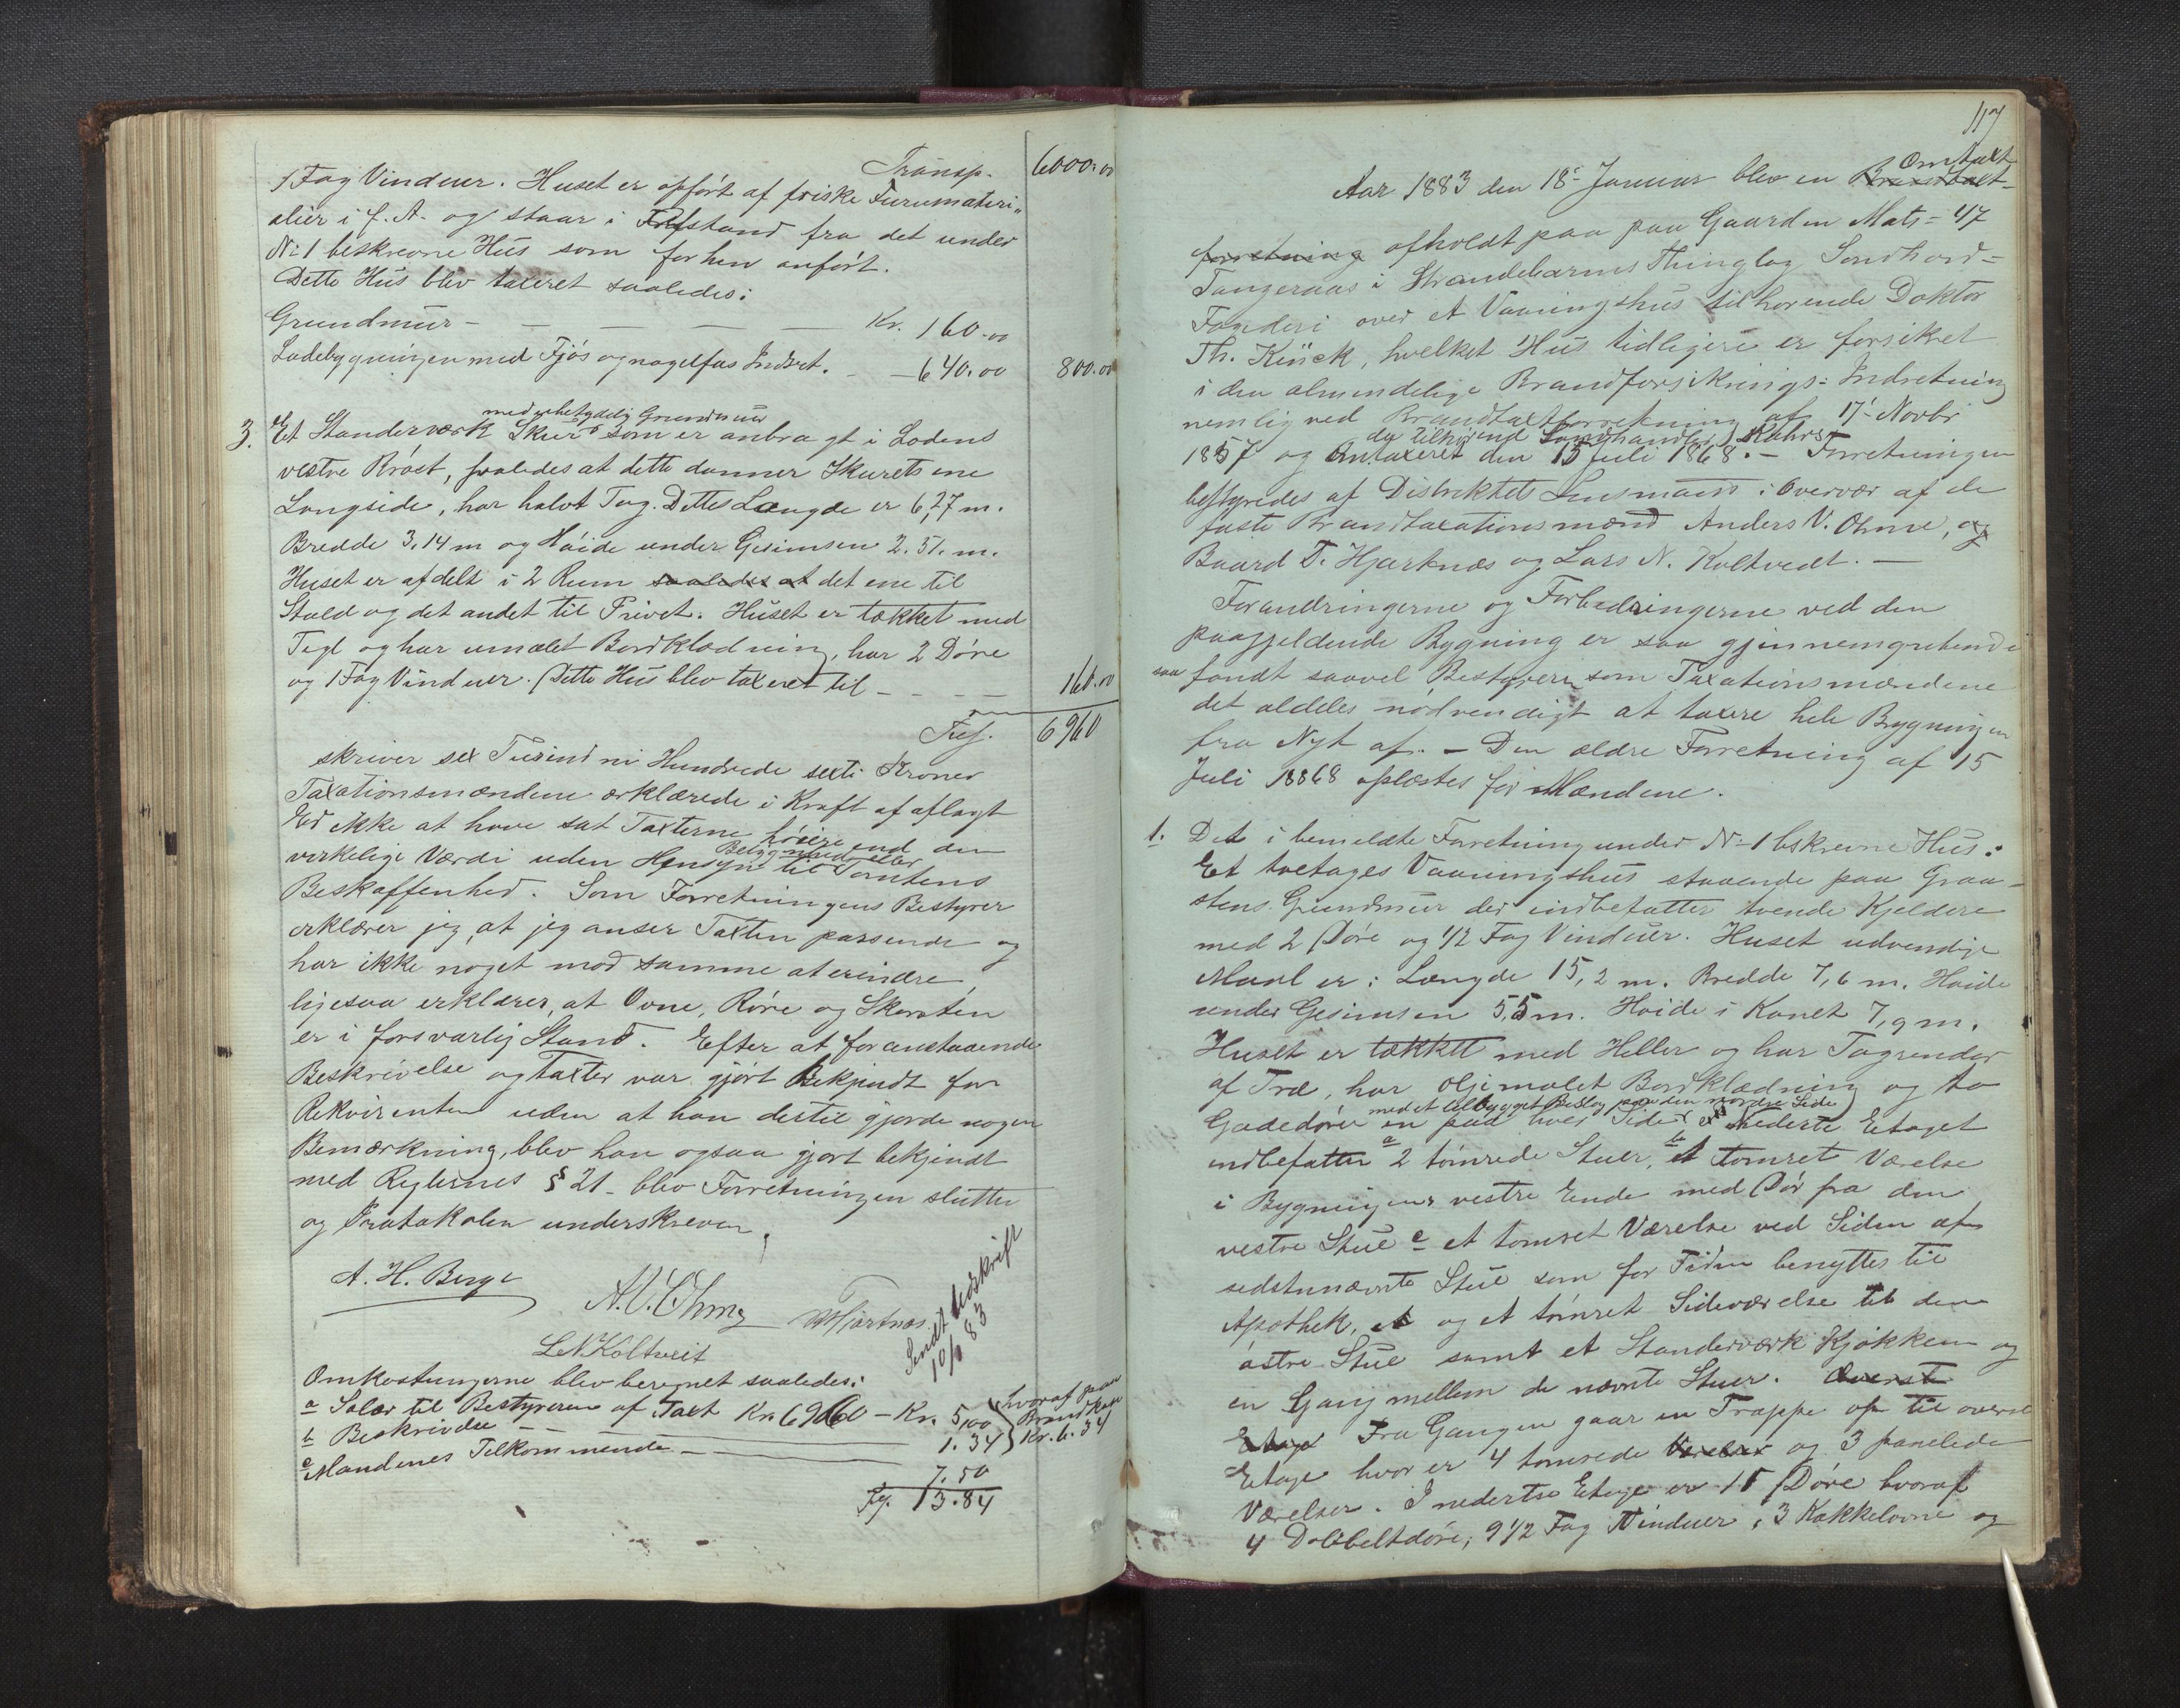 Transp. 6000.00
1 Fag Vinduer. Huset er opført af friske Furumateri„
alier i f. A. og staar i Afstand fra det under
N: 1 beskrevne Hus som forhen anført.
Dette Hus blev taxeret saaledes:
Grundmur - - - - - Kr. 160.00
Ladebygningen med Fjøs og nagelfas Indret. - - 640.00 800.00
med ubetydelig Grundmur
3. Et Standerværk Skur som er anbragt i Ladens
vestre Røst, saaledes at dette danner Skurets ene
Langside, har halvt Tag. Dettes Længde er 6,27 m.
Bredde 3.14 m og Høide under Gesimsen 2.51. m.
Huset er afdelt i 2 Rum saaledes at det ene til
Stald og det andet til Privet. Huset er tækket med
Tegl og har umalet Bordklædning, har 2 Døre
og 1 Fag Vinduer. Dette Hus blev taxeret til - - - - 160.00
6960
skriver sex Tusind ni Hundrede sexti Kroner
Taxationsmændene erklærede i Kraft af aflagt
Ed ikke at have sat Taxterne høiere end den
Beliggenhed eller
virkelige Værdi uden Hensyn til Tomtens
Beskaffenhed. Som Forretningens Bestyrer
erklærer jeg, at jeg anser Taxten passende og
har ikke noget mod samme at erindre
ligesaa erklærer, at Ovne, Røre og Skorsten
er i forsvarlig Stand. Efter at foranstaaende
Beskrivelse og Taxter var gjort Bekjendt for
Rekvirenten uden at han dertil gjorde nogen
Bemærkning, blev han ogsaa gjort bekjendt
med Reglernes § 21 - blev Forretningen sluttet
og Protokolen underskreven.
A. H. Berge A. V. Ohme Hjartnæs
L N Koltveit
Sendt Udskrift
10/1 83
Omkostningerne blev beregnet saaledes:
a Salær til Bestyreren af Taxt Kr. 6960 - Kr. 5,00 } hvoraf paa
b Beskrivelse - - 1.34 } Brandkassen Kr. 6.34
c Mændenes Tilkommende - 7.50
13.84
117
Omtaxt
Aar 1883 den 18' Januar blev en Brandtaxt-
forretning afholdt paa paa Gaarden Mats= 47
Tangeraas i Strandebarms Thinglag Søndhord=
Fogderi over et Vaaningshus tilhørende Doktor
Th. Kinck, hvelket Hus tidligere er forsikret
i den almindelige Brandforsikrings=Indretning
nemlig ved Brandtaxtforretning af 17' Novbr
da tilhørend Landhandler Rahrs
1857 og Omtaxeret den 15 Juli 1868. - Forretningen
bestyredes af Distriktets Lensmand i Overvær af de
faste Brandtaxationsmænd Anders V. Ohme, og
Baard T. Hjartnæs og Lars N. Koltvedt. -
Forandringerne og Forbedringerne ved den
paagjeldende Bygning er saa gjennemgribende
saa fandt saavel Bestyreren som Taxationsmændene
det aldeles nødvendigt at taxere hele Bygningen
fra Nyt af. - Den ældre Forretning af 15
Juli 18868 oplæstes for Mændene.
1. Det i bemeldte Forretning under N-1 beskrevne Hus:
Et toetages Vaaningshus staaende paa Graa-
stens Grundmur der indbefatter tvende Kjeldere
med 2 Døre og 1/2 Fag Vinduer. Huset udvendige
Maal er: Længde 15,2 m. Bredde 7,6 m. Høide
under Gesimsen 5,5 m. Høide i Kanet 7,9 m.
Huset er tækket med Heller og har Tagrender
af Træ, har oljemalet Bordklædning og to
med et tilbygget Bislag paa den nordre Side
Gadedører en paa hver Side. Nederte Etaget
indbefatter a 2 tømrede Stuer, b et tømret Værelse
i Bygningens vestre Ende med Dør fra den
vestre Stue c et tømret Værelse ved Siden af
sidstnævnte Stue som for Tiden benyttes til
Apothek, et og et tømret Sideværelse til den
østre Stue samt et Standerværk Kjøkken og
en Gang mellem de nævnte Stuer. Øverste
Etage Fra Gangen gaar en Trappe op til øverste
Etage hvor er 4 tømrede Værelser og 3 panelede
Værelser. I nederste Etage er 15 Døre hvoraf
4 Dobbeltdøre, 9 1/2 Fag Vinduer, 3 Kakkelovne og